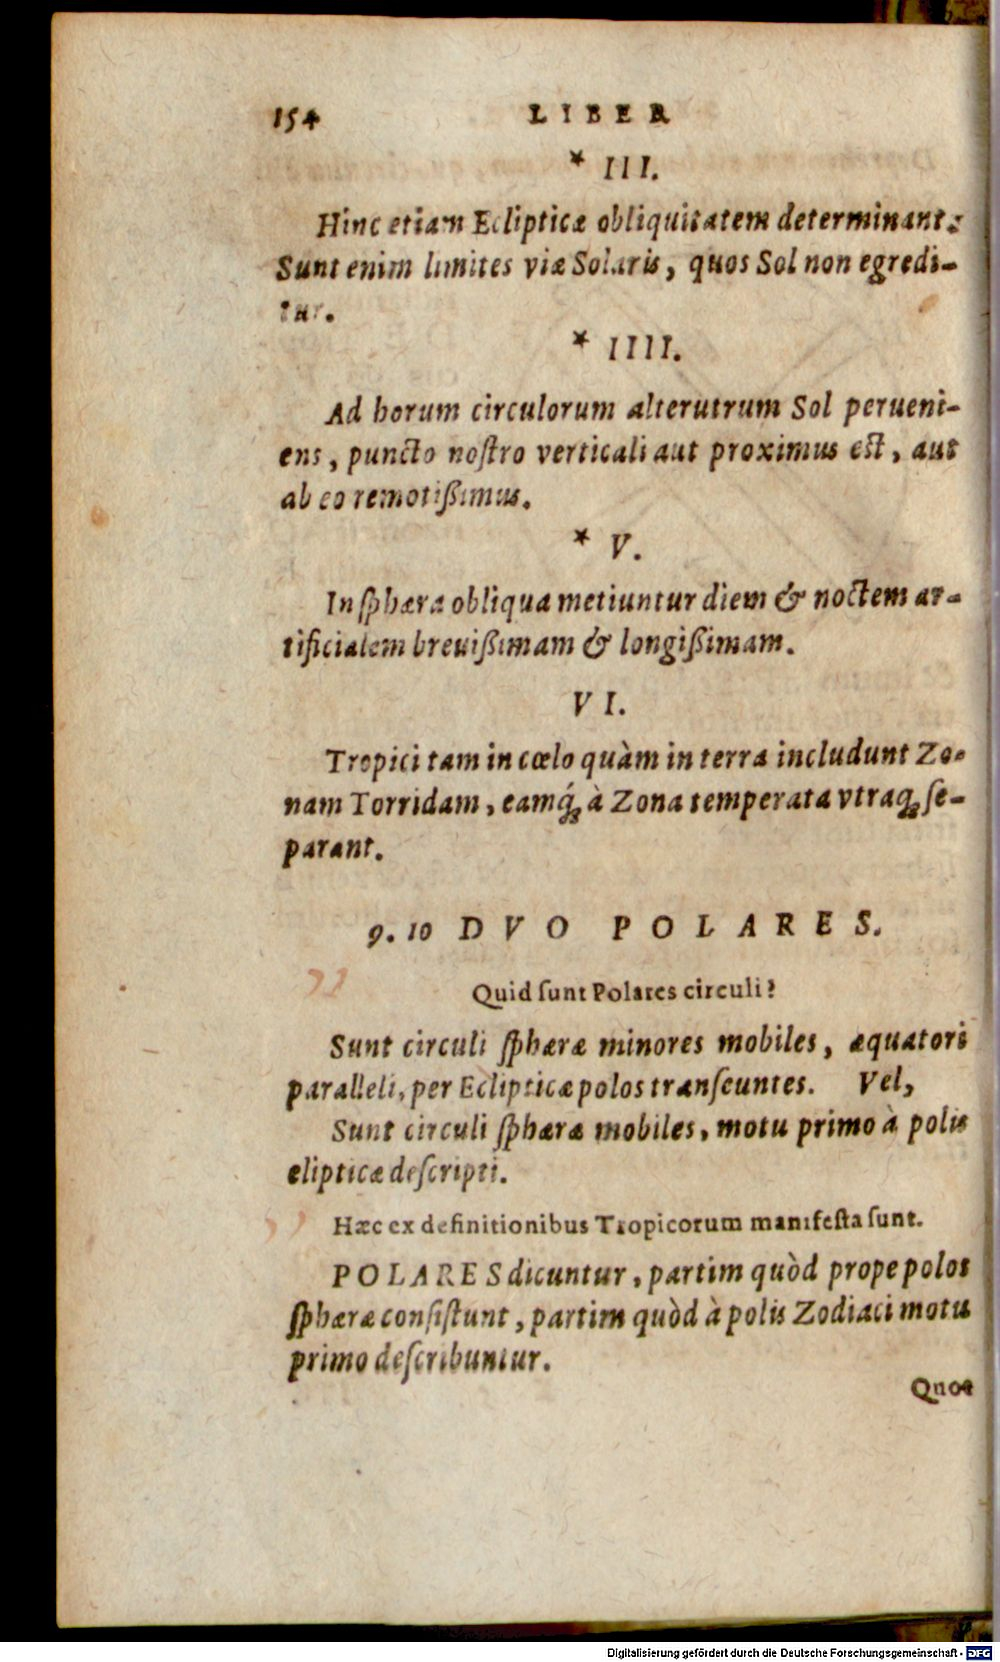 154 LIBER
* III.
Hinc etiam Eclipticæ obliquitatem determinant:
Sunt enim limites viæ Solaris, quos Sol non egredi-
tur.
* IIII.
Ad horum circulorum alterutrum Sol perueni-
ens, puncto noſtro verticali aut proximus eſt, aut
ab eo remotißimus.
* V.
In ſphæra obliqua metiuntur diem & noctem ar-
tificialem breuißimam & longißimam.
VI.
Tropici tam in cœlo quàm in terra includunt Zo-
nam Torridam, eamq́ꝫ à Zona temperata vtraqꝫ ſe-
parant.
9. 10 DVO POLARES.
Quid ſunt Polares circuli?
Sunt circuli ſphæræ minores mobiles, æquatori
paralleli, per Eclipticæ polos tranſeuntes. Vel,
Sunt circuli ſphæræ mobiles, motu primo à polis
elipticæ deſcripti.
Hæc ex definitionibus Tropicorum manifeſta ſunt.
POLARES dicuntur, partim quòd prope polos
ſphæræ conſiſtunt, partim quòd à polis Zodiaci motu
primo deſcribuntur.
Quot
Digitalisierung gefördert durch die Deutsche Forschungsgemeinschaft - DFG